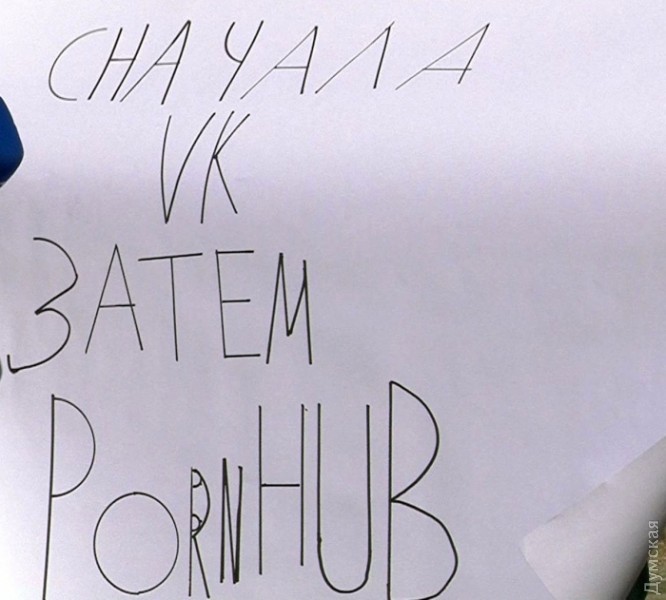 СНАЧАЛА
VK
ЗАТЕМ
PORNHUB
Думская